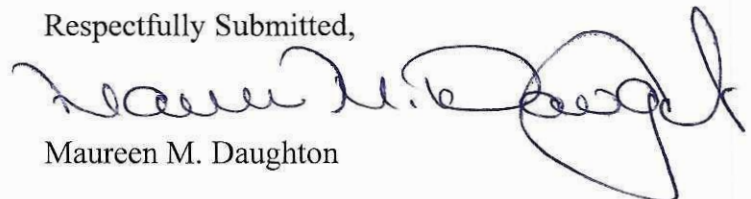 Respectfully Submitted,
Maureen M. Daughton
Maureen M. Daughton